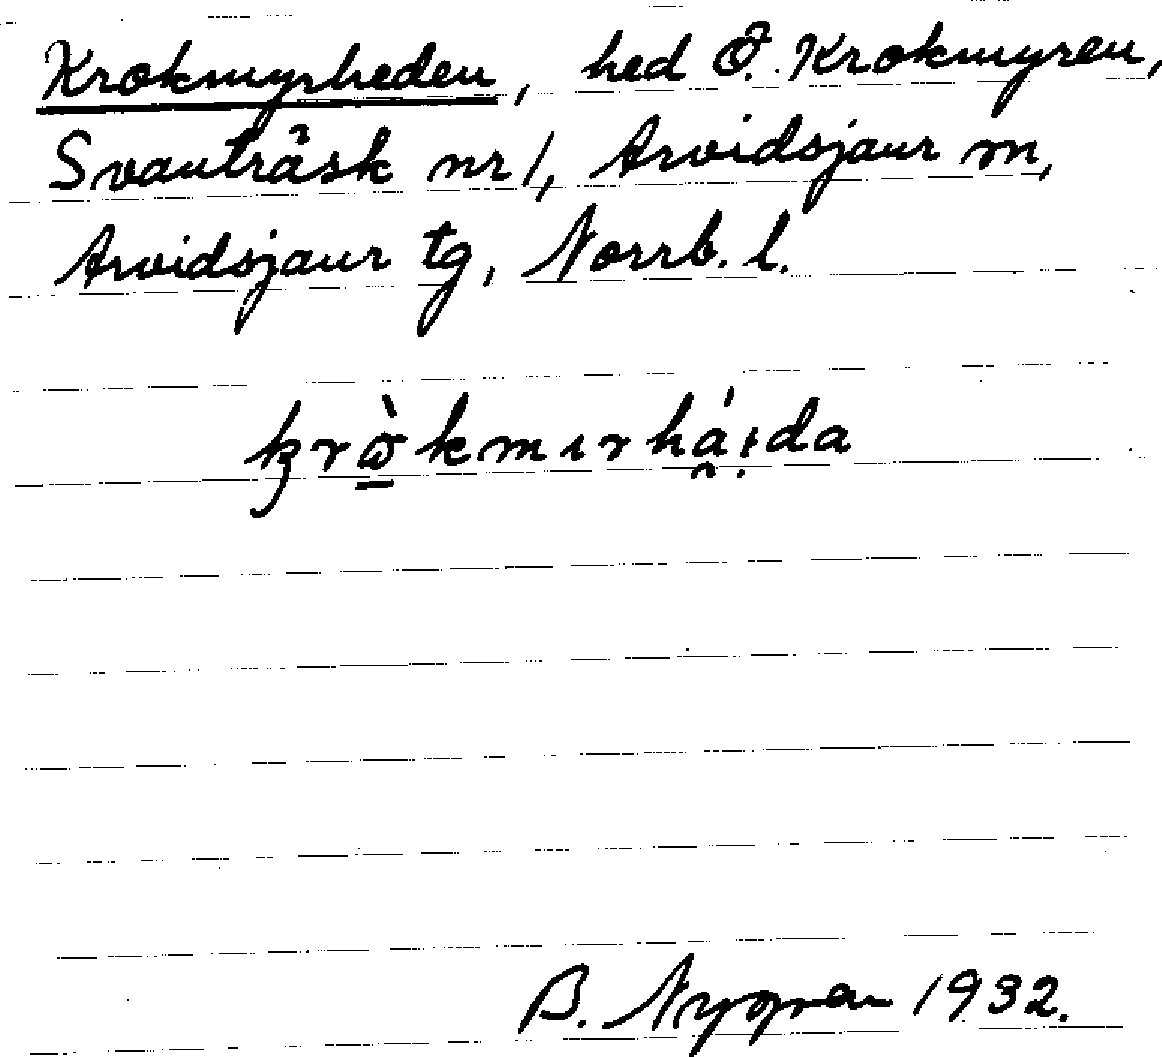 Krokmyrheden, hed Ö. Krokmyren,
Svanträsk nr 1, Arvidsjaur sn,
Arvidsjaur tg, Norrb. l.
B. Nygren 1932.